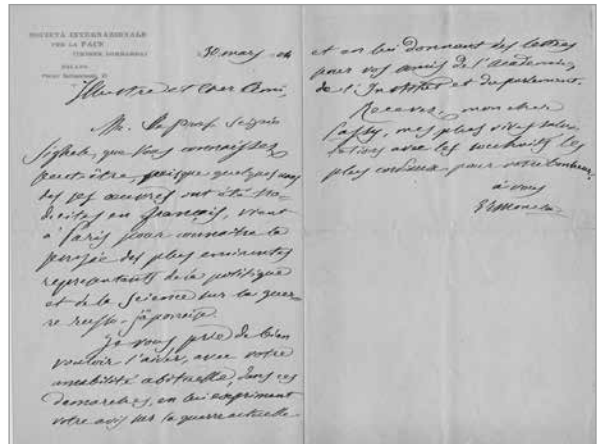 SOCIETÀ INTERNAZIONALE
PER LA PACE
(UNIONE LOMBARDA)
MILANO
30 mars 04
Illustre et Cher Ami,
M. le prof. Scipio
Sighele, que vous connaissez
peut être, puisque quelques uns
des ses oeuvres ont été tra-
duites en français, vient
à Paris pour connaître la
pensée des plus eminents
representants de la politique
et de la Science sur la guer-
re russo-japonaise.
Je vous prie de bien
vouloir l'aider, avec votre
amabilité abituelle, dans ces
demarches, en lui exprimant
votre avis sur la guerre actuelle
et en lui donnant des lettres
pour vos amis de l'Academie,
de l'Institut et du parlement.
Recevez, mon cher
Passy, mes plus vives salu-
tations avec les souhaits les
plus cordiaux pour votre bonheur.
à vous
E T Moneta